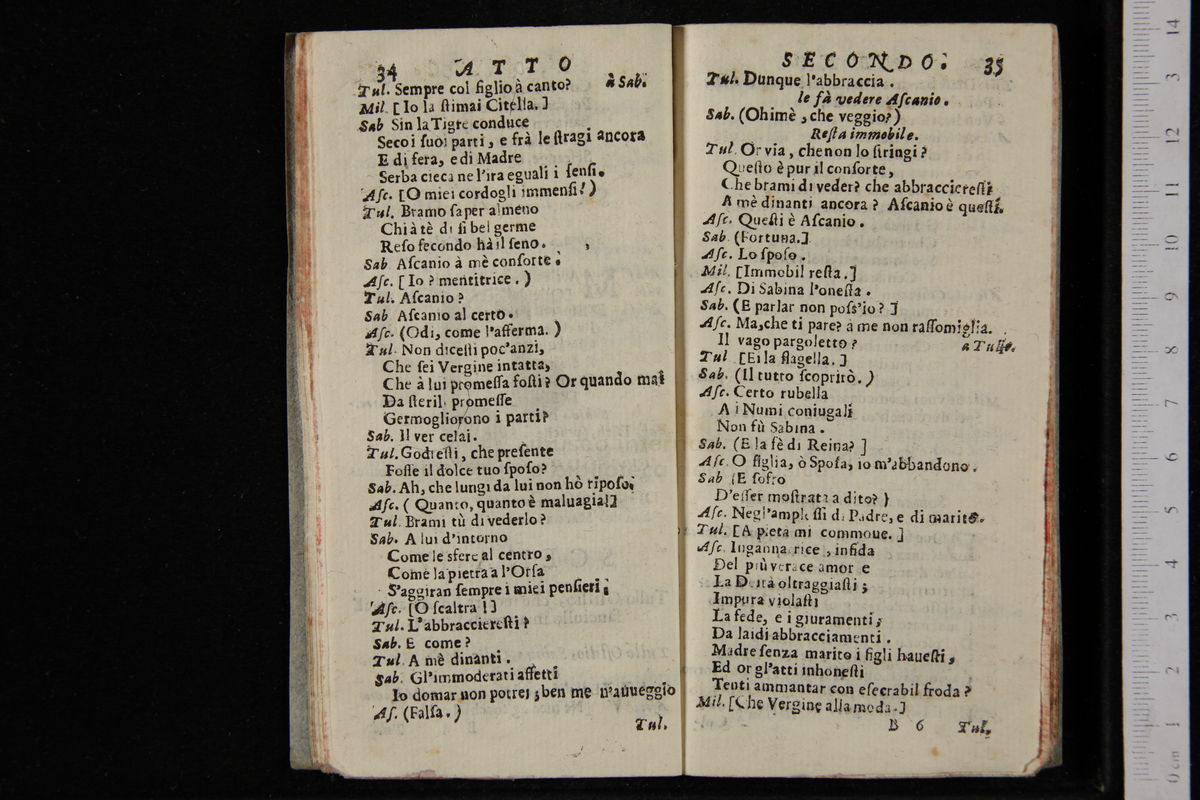 34 ATTO
Tul. Sempre col figlio à canto? à Sab.
Mil. [Io la ſtimai Citella.]
Sab Sin la Tigre conduce
Seco i ſuoi parti, e frà le ſtragi ancora
E di fera, e di Madre
Serba cieca ne l'ira eguali i ſenſi.
Aſc. [O miei cordogli immenſi!)
Tul. Bramo ſaper almeno
Chi à tè di ſi bel germe
Reſo fecondo hà il ſeno.
Sab Aſcanio à mè conſorte.
Aſc. [Io? mentitrice.)
Tul. Aſcanio?
Sab Aſcanio al certo.
Aſc. (Odi, come l'afferma.)
Tul. Non diceſti poc'anzi,
Che ſei Vergine intatta,
Che à lui promeſſa foſti? Or quando mai
Da ſteril promeſſe
Germogliorono i parti?
Sab. Il ver celai.
Tul. Godreſti, che preſente
Foſſe il dolce tuo ſpoſo?
Sab. Ah, che lungi da lui non hò ripoſo.
Aſc. (Quanto, quanto è maluagia!]
Tul. Brami tù di vederlo?
Sab. A lui d'intorno
Come le sfere al centro,
Come la pietra a l'Orſa
S'aggiran ſempre i miei penſieri;
Aſc. [O ſcaltra!]
Tul. L'abbraccierеſti?
Sab. E come?
Tul. A mè dinanti.
Sab. Gl'immoderati affetti
Io domar non potrei; ben me n'auueggio
Aſ. (Falſa.)
Tul.
SECONDO. 35
Tul. Dunque l'abbraccia.
le fà vedere Aſcanio.
Sab. (Ohimè, che veggio?)
Reſta immobile.
Tul. Or via, che non lo ſtringi?
Queſto è pur il conſorte,
Che brami di veder? che abbracciereſti
A mè dinanti ancora? Aſcanio è queſti.
Aſc. Queſti è Aſcanio.
Sab. (Fortuna.]
Aſc. Lo ſpoſo.
Mil. [Immobil reſta.]
Aſc. Di Sabina l'oneſta.
Sab. (E parlar non poſs'io?]
Aſc. Ma, che ti pare? a me non raſſomiglia.
Il vago pargoletto? a Tullo.
Tul [Ei la flagella.]
Sab. (Il tutto ſcoprirò.)
Aſc. Certo rubella
A i Numi coniugali
Non fù Sabina.
Sab. (E la fè di Reina?]
Aſc. O figlia, ò Spoſa, io m'abbandono.
Sab (E ſofro
D'eſſer moſtrata a dito?)
Aſc. Negl'ampleſſi di Padre, e di marito.
Tul. [A pietà mi commoue.]
Aſc. Ingannatrice, infida
Del più verace amore
La Deità oltraggiaſti;
Impura violaſti
La fede, e i giuramenti;
Da laidi abbracciamenti.
Madre ſenza marito i figli haueſti,
Ed or gl'atti inhoneſti
Tenti ammantar con eſecrabil froda?
Mil. [Che Vergine alla moda.]
B 6 Tul.
0 cm 1 2 3 4 5 6 7 8 9 10 11 12 13 14